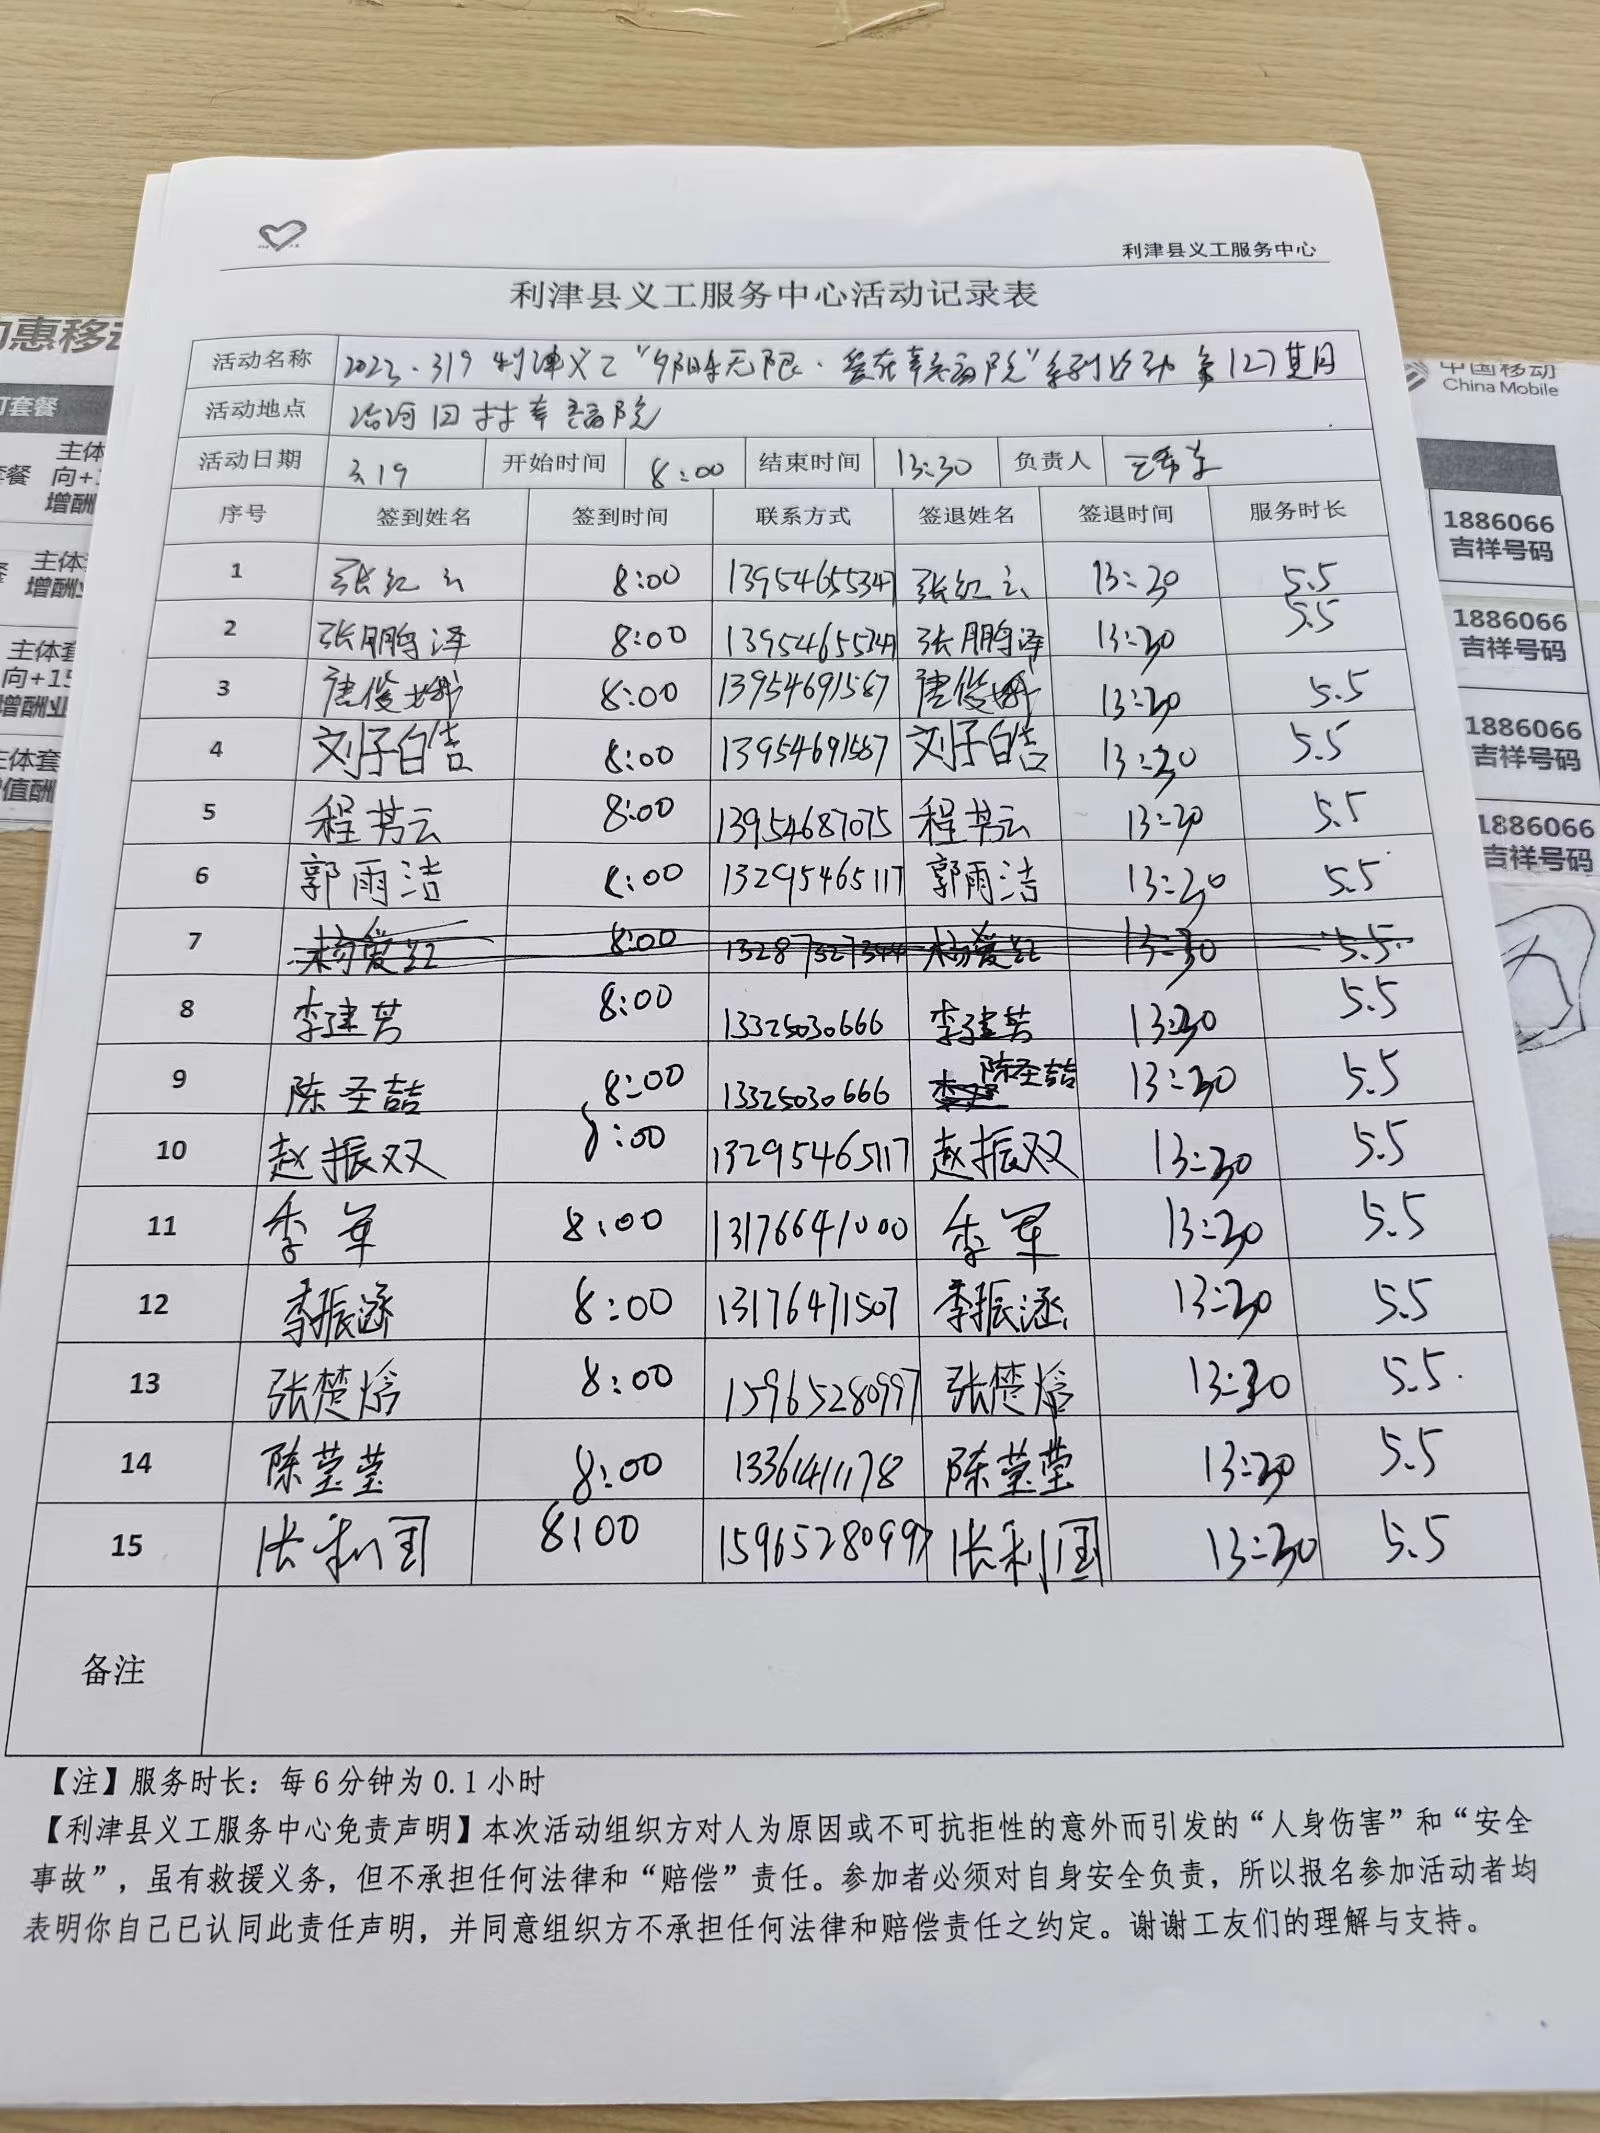 利津县义工服务中心
利津县义工服务中心活动记录表
活动名称 2023.319 利津义工“夕阳无限·爱在幸福院”系列活动 第127期
活动地点 村幸福院
活动日期 3.19 开始时间 8:00 结束时间 13:30 负责人
序号 签到姓名 签到时间 联系方式 签退姓名 签退时间 服务时长
1 张红云 8:00 13954655347 张红云 13:30 5.5
2 张鹏泽 8:00 13954655347 张鹏泽 13:30 5.5
3 唐俊娥 8:00 13954691567 唐俊娥 13:30 5.5
4 刘子皓 8:00 13954691567 刘子皓 13:30 5.5
5 程芳云 8:00 13954687075 程芳云 13:30 5.5
6 郭雨洁 8:00 13295465117 郭雨洁 13:30 5.5
7 杨爱红 8:00 13287327344 杨爱红 13:30 5.5
8 李建芳 8:00 13325030666 李建芳 13:30 5.5
9 陈圣喆 8:00 13325030666 陈圣喆 13:30 5.5
10 赵振双 8:00 13295465117 赵振双 13:30 5.5
11 李军 8:00 13176641000 李军 13:30 5.5
12 李振涵 8:00 13176471507 李振涵 13:30 5.5
13 张楚焓 8:00 15965280997 张楚焓 13:30 5.5
14 陈莹莹 8:00 13361411178 陈莹莹 13:30 5.5
15 张利国 8:00 15965280997 张利国 13:30 5.5
备注
【注】服务时长：每6分钟为0.1小时
【利津县义工服务中心免责声明】本次活动组织方对人为原因或不可抗拒性的意外而引发的“人身伤害”和“安全
事故”，虽有救援义务，但不承担任何法律和“赔偿”责任。参加者必须对自身安全负责，所以报名参加活动者均
表明你自己已认同此责任声明，并同意组织方不承担任何法律和赔偿责任之约定。谢谢工友们的理解与支持。
惠移动
套餐
主体
向+1
增酬
主体
增酬业
主体套
向+15
增酬业
主体套
值酬
中国移动
China Mobile
1886066
吉祥号码
1886066
吉祥号码
1886066
吉祥号码
1886066
吉祥号码